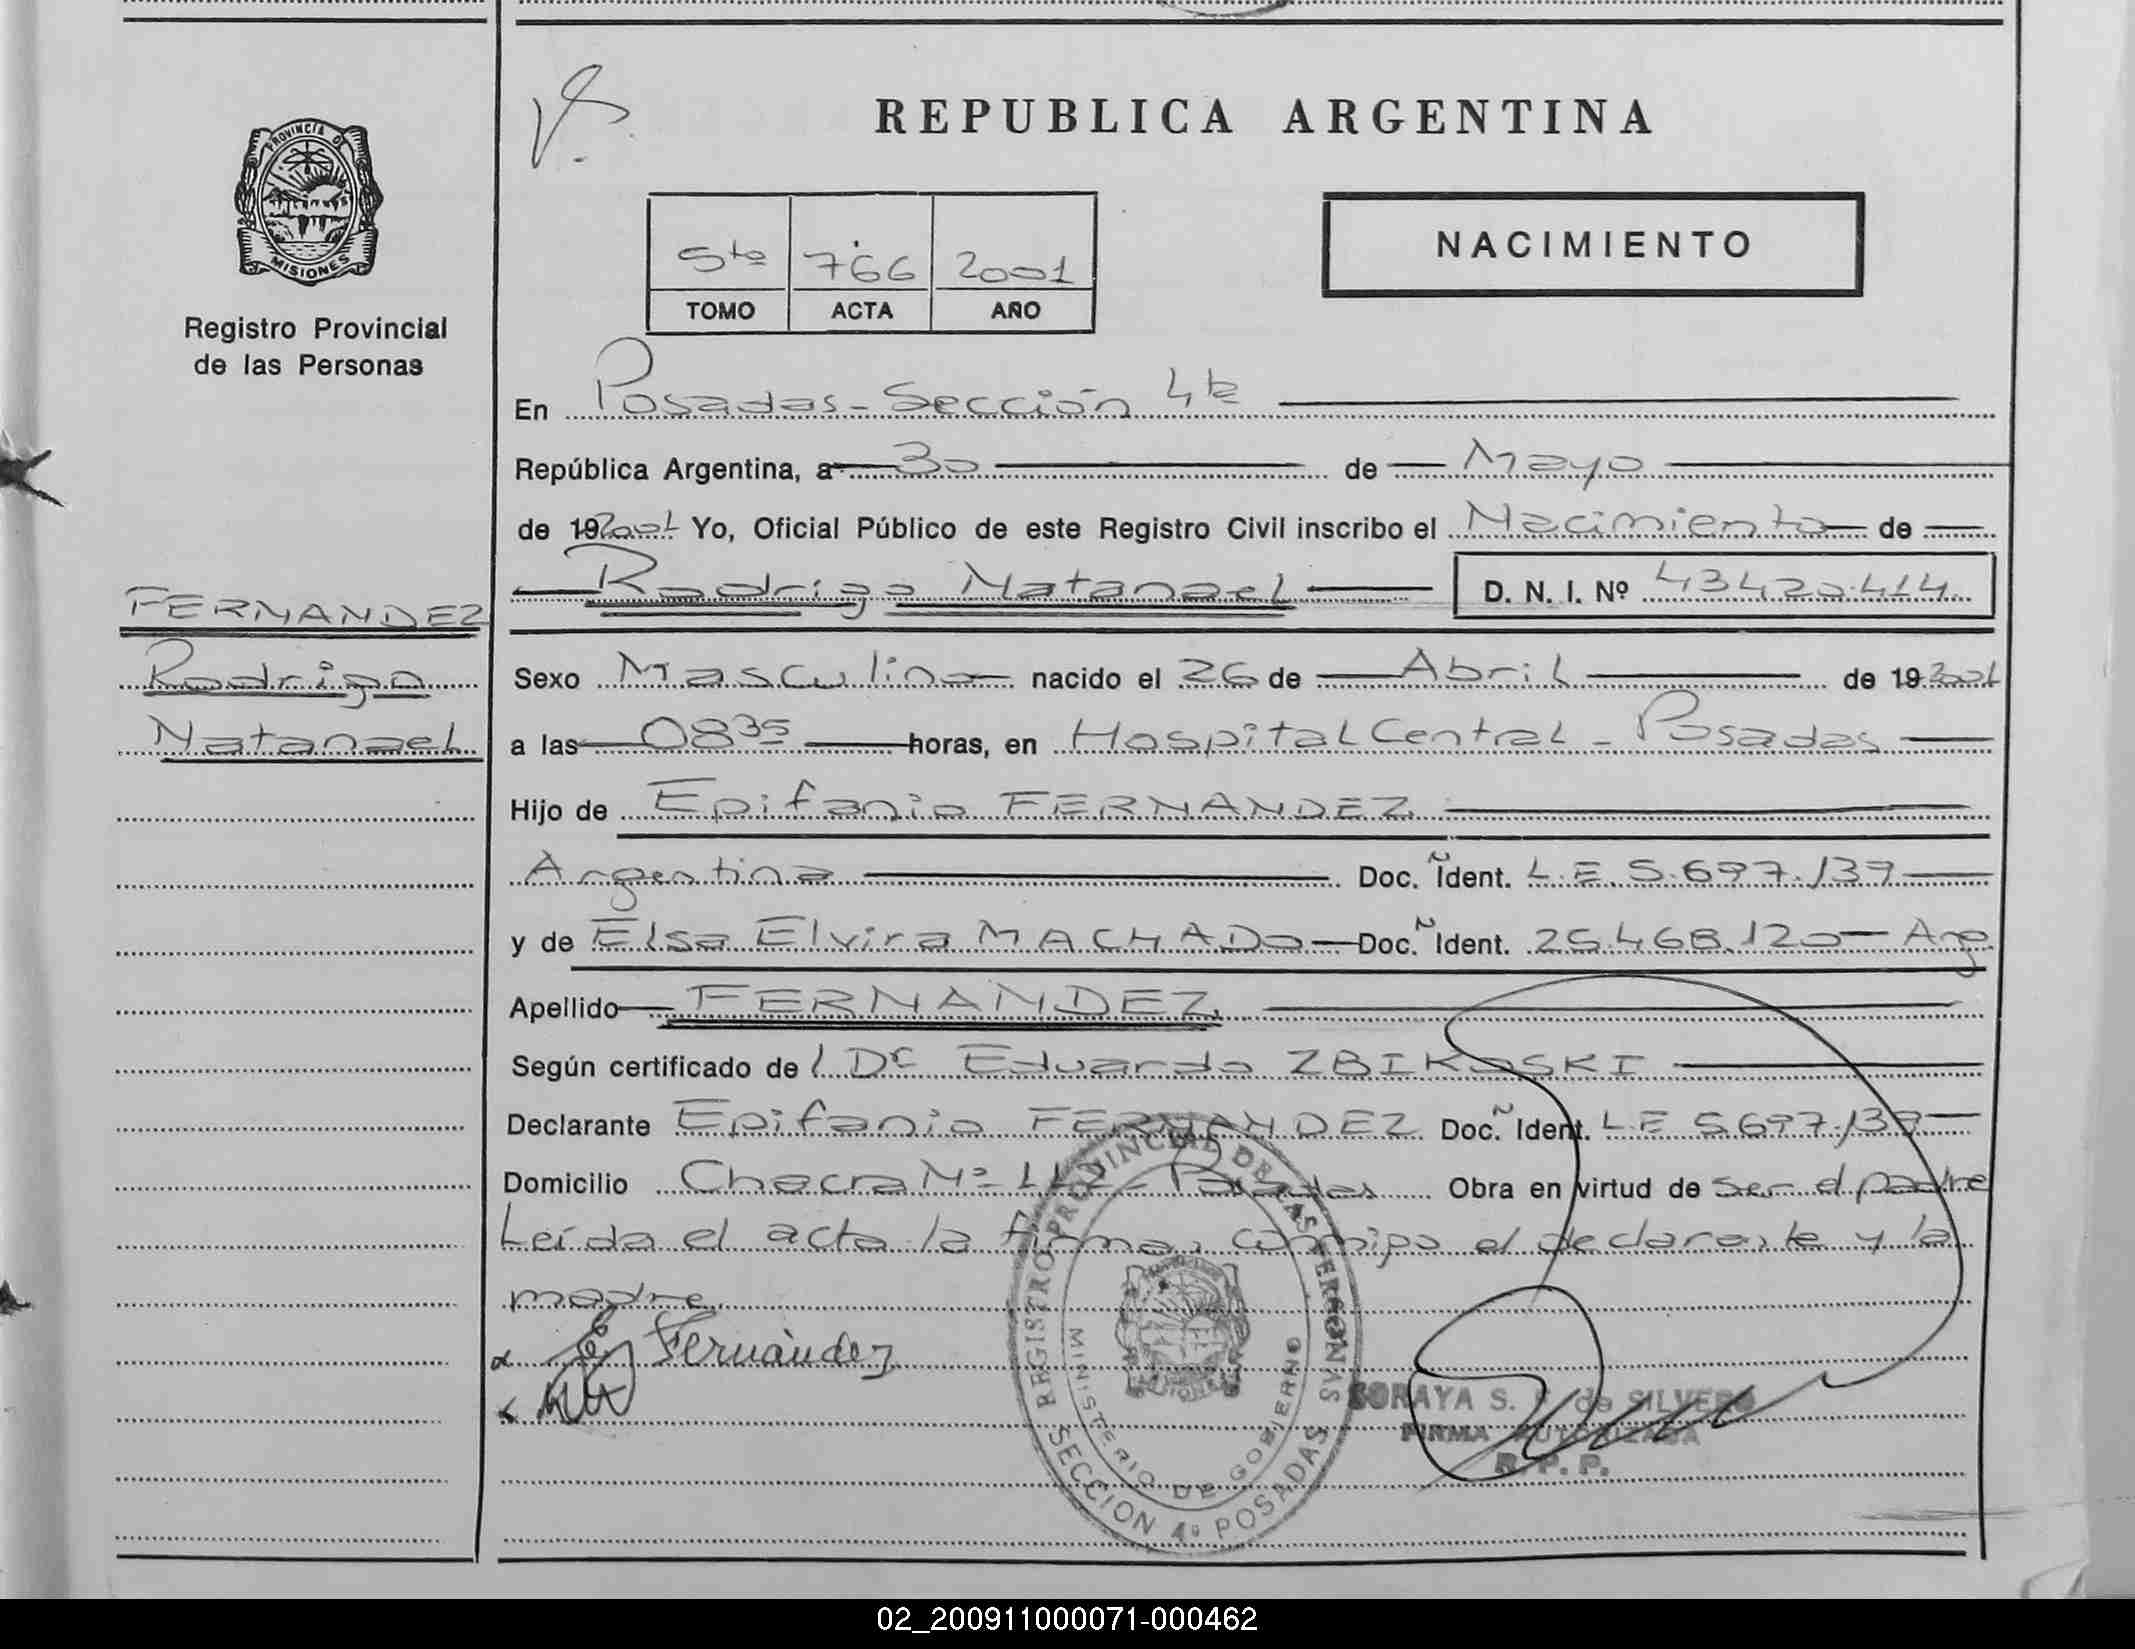 PROVINCIA DE
MISIONES
Registro Provincial
de las Personas
FERNANDEZ
Rodrigo
Natanael
REPUBLICA ARGENTINA
5to 766 2001
TOMO ACTA AÑO
NACIMIENTO
En Posadas - Sección 4ta
República Argentina, a 30 de Mayo
de 192001 Yo, Oficial Público de este Registro Civil inscribo el Nacimiento de
Rodrigo Natanael D. N. I. Nº 43420414
Sexo Masculino nacido el 26 de Abril de 192001
a las 08 35 horas, en Hospital Central - Posadas
Hijo de Epifanio FERNANDEZ
Argentina Doc. Ident. L.E. 5.697.139
y de Elsa Elvira MACHADO Doc. Ident. 25.468.120 Arg
Apellido FERNANDEZ
Según certificado de Dr Eduardo ZBIKOSKI
Declarante Epifanio FERNANDEZ Doc. Ident. L.E 5.697.139
Domicilio Chacra Nº 112 - Posadas Obra en virtud de ser el padre
Leída el acta la firman conmigo el declarante y la
madre
Fernández
REGISTRO PROVINCIAL DE LAS PERSONAS
MINISTERIO DE GOBIERNO
SECCION 4º POSADAS
SORAYA S. de SILVERO
FIRMA AUTORIZADA
R. P. P.
02_200911000071-000462